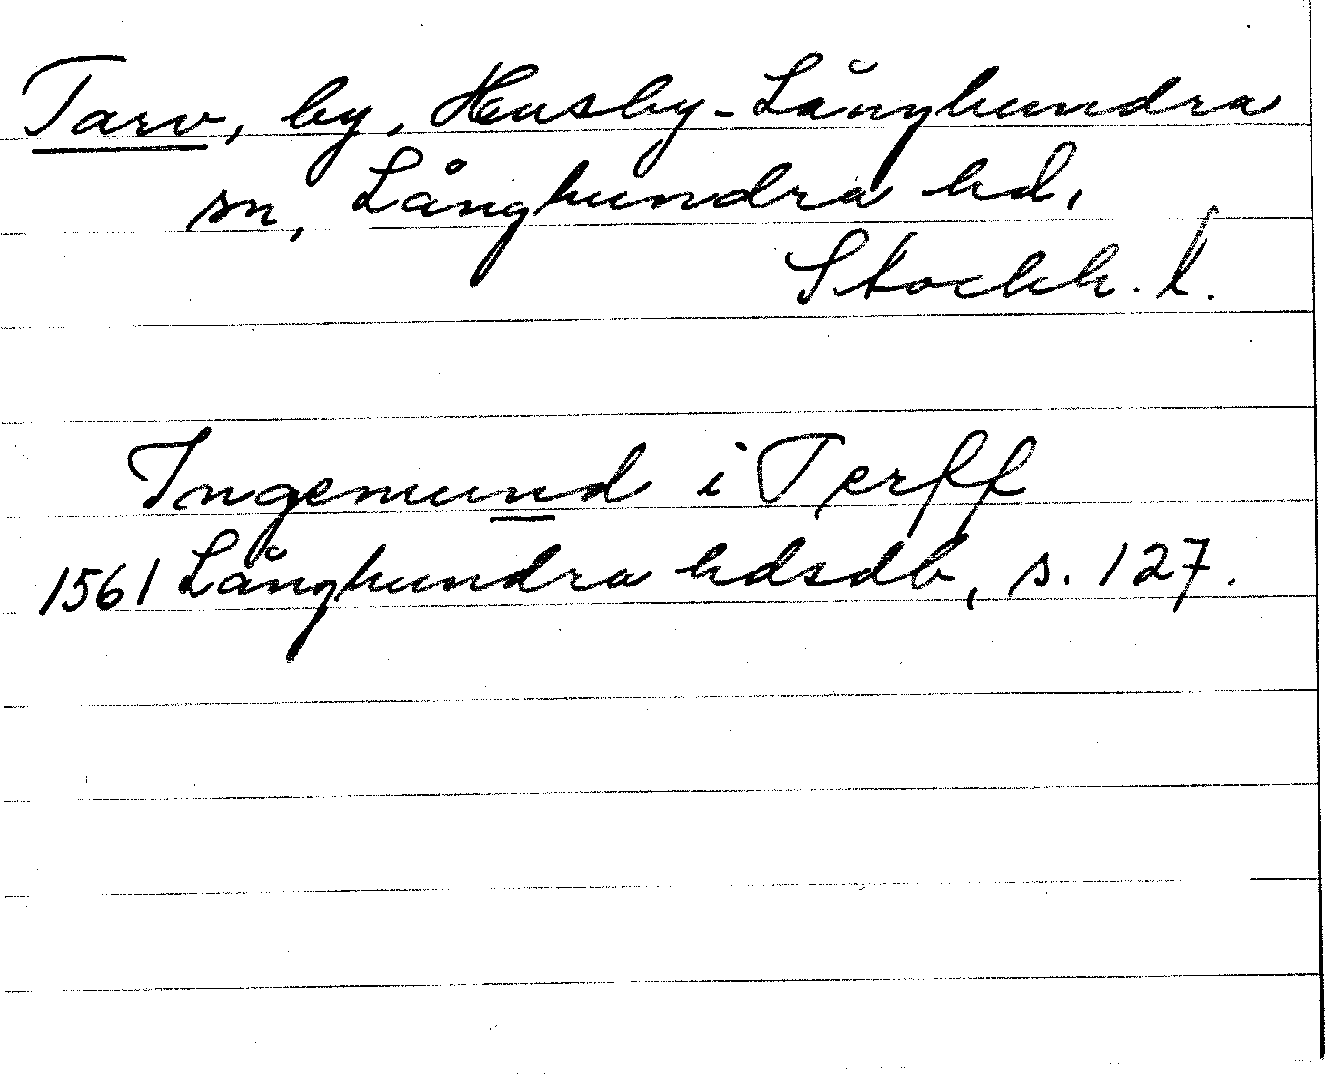 Tarv, by, Husby-Långhundra
sn, Långhundra hd,
Stockh. l.
Ingemund i Terff
1561 Långhundra hdsdb, s. 127.